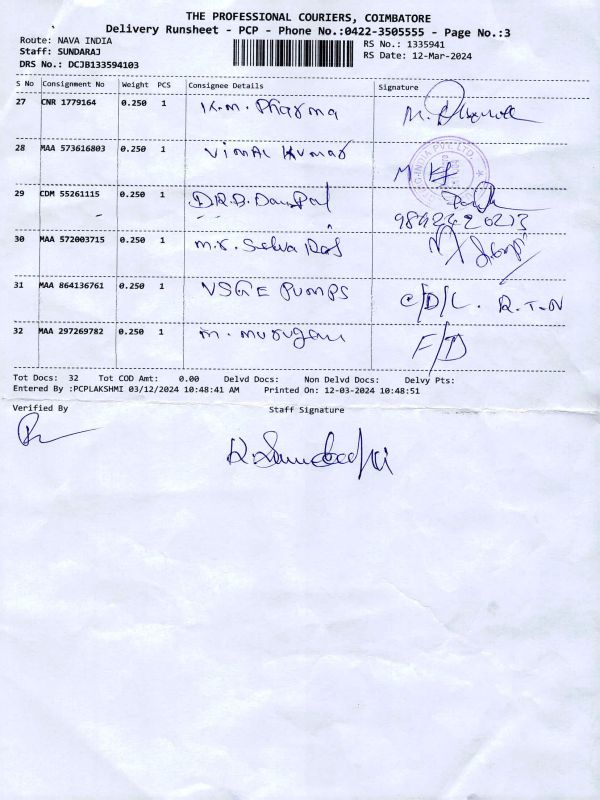 THE PROFESSIONAL COURIERS, COIMBATORE
Delivery Runsheet - PCP - Phone No.:0422-3505555 - Page No.:3
Route: NAVA INDIA
RS No.: 1335941
Staff: SUNDARAJ
RS Date: 12-Mar-2024
DRS No.: DCJB133594103
S No Consignment No Weight PCS Consignee Details Signature
27 CNR 1779164 0.250 1 K.M. Pharma
28 MAA 573616803 0.250 1 Vimal Kumar
29 CDM 55261115 0.250 1
30 MAA 572003715 0.250 1 M.R. Selva Raj
31 MAA 864136761 0.250 1 VSGE PUMPS C/D/L. R.T.N
32 MAA 297269782 0.250 1 M. Murugan F/D
Tot Docs: 32 Tot COD Amt: 0.00 Delvd Docs: Non Delvd Docs: Delvy Pts:
Entered By :PCPLAKSHMI 03/12/2024 10:48:41 AM Printed On: 12-03-2024 10:48:51
Verified By Staff Signature